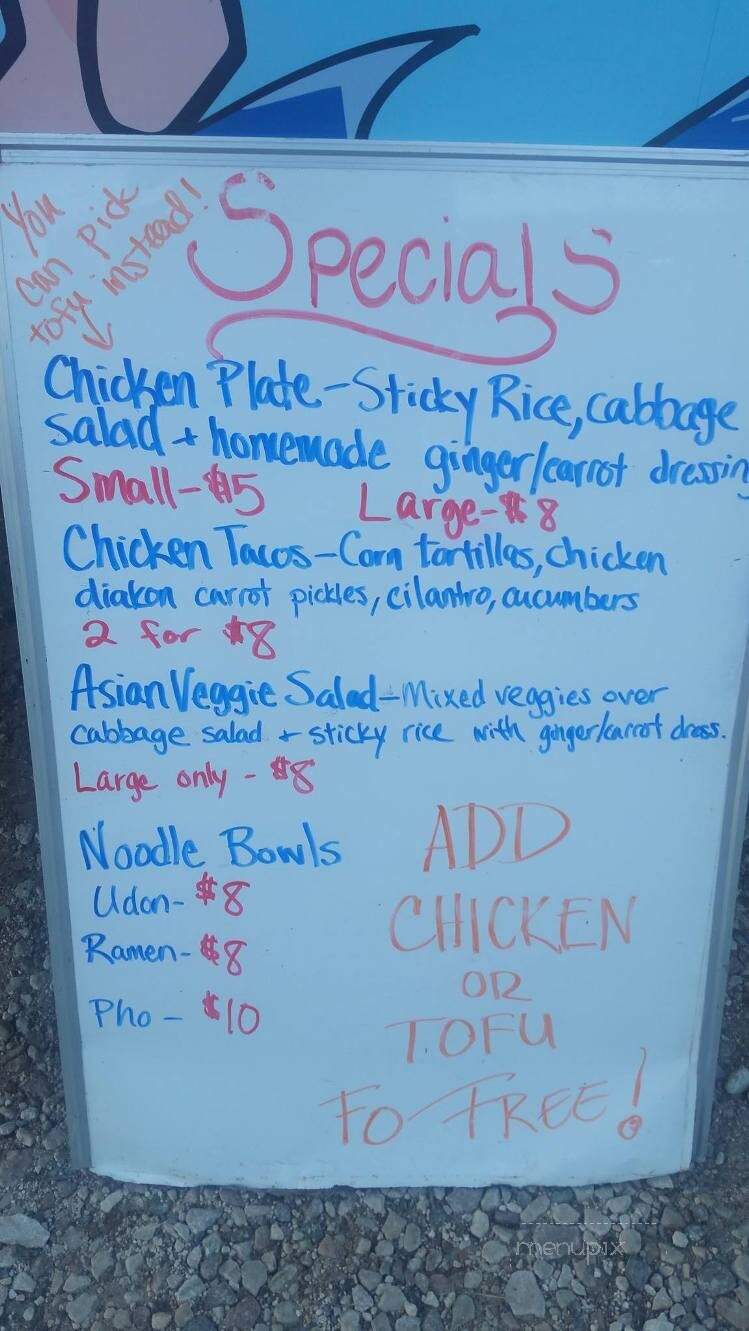 You
can pick
tofu instead!
Specials
Chicken Plate-Sticky Rice, cabbage
salad + homemade ginger/carrot dressin
Small-$5 Large-$8
Chicken Tacos-Corn tortillas, chicken
diakon carrot pickles, cilantro, cucumbers
2 for $8
Asian Veggie Salad-Mixed veggies over
cabbage salad + sticky rice with ginger/carrot dress.
Large only - $8
Noodle Bowls
Udon- $8
Ramen- $8
Pho - $10
ADD
CHICKEN
OR
TOFU
FO-FREE!
menupix